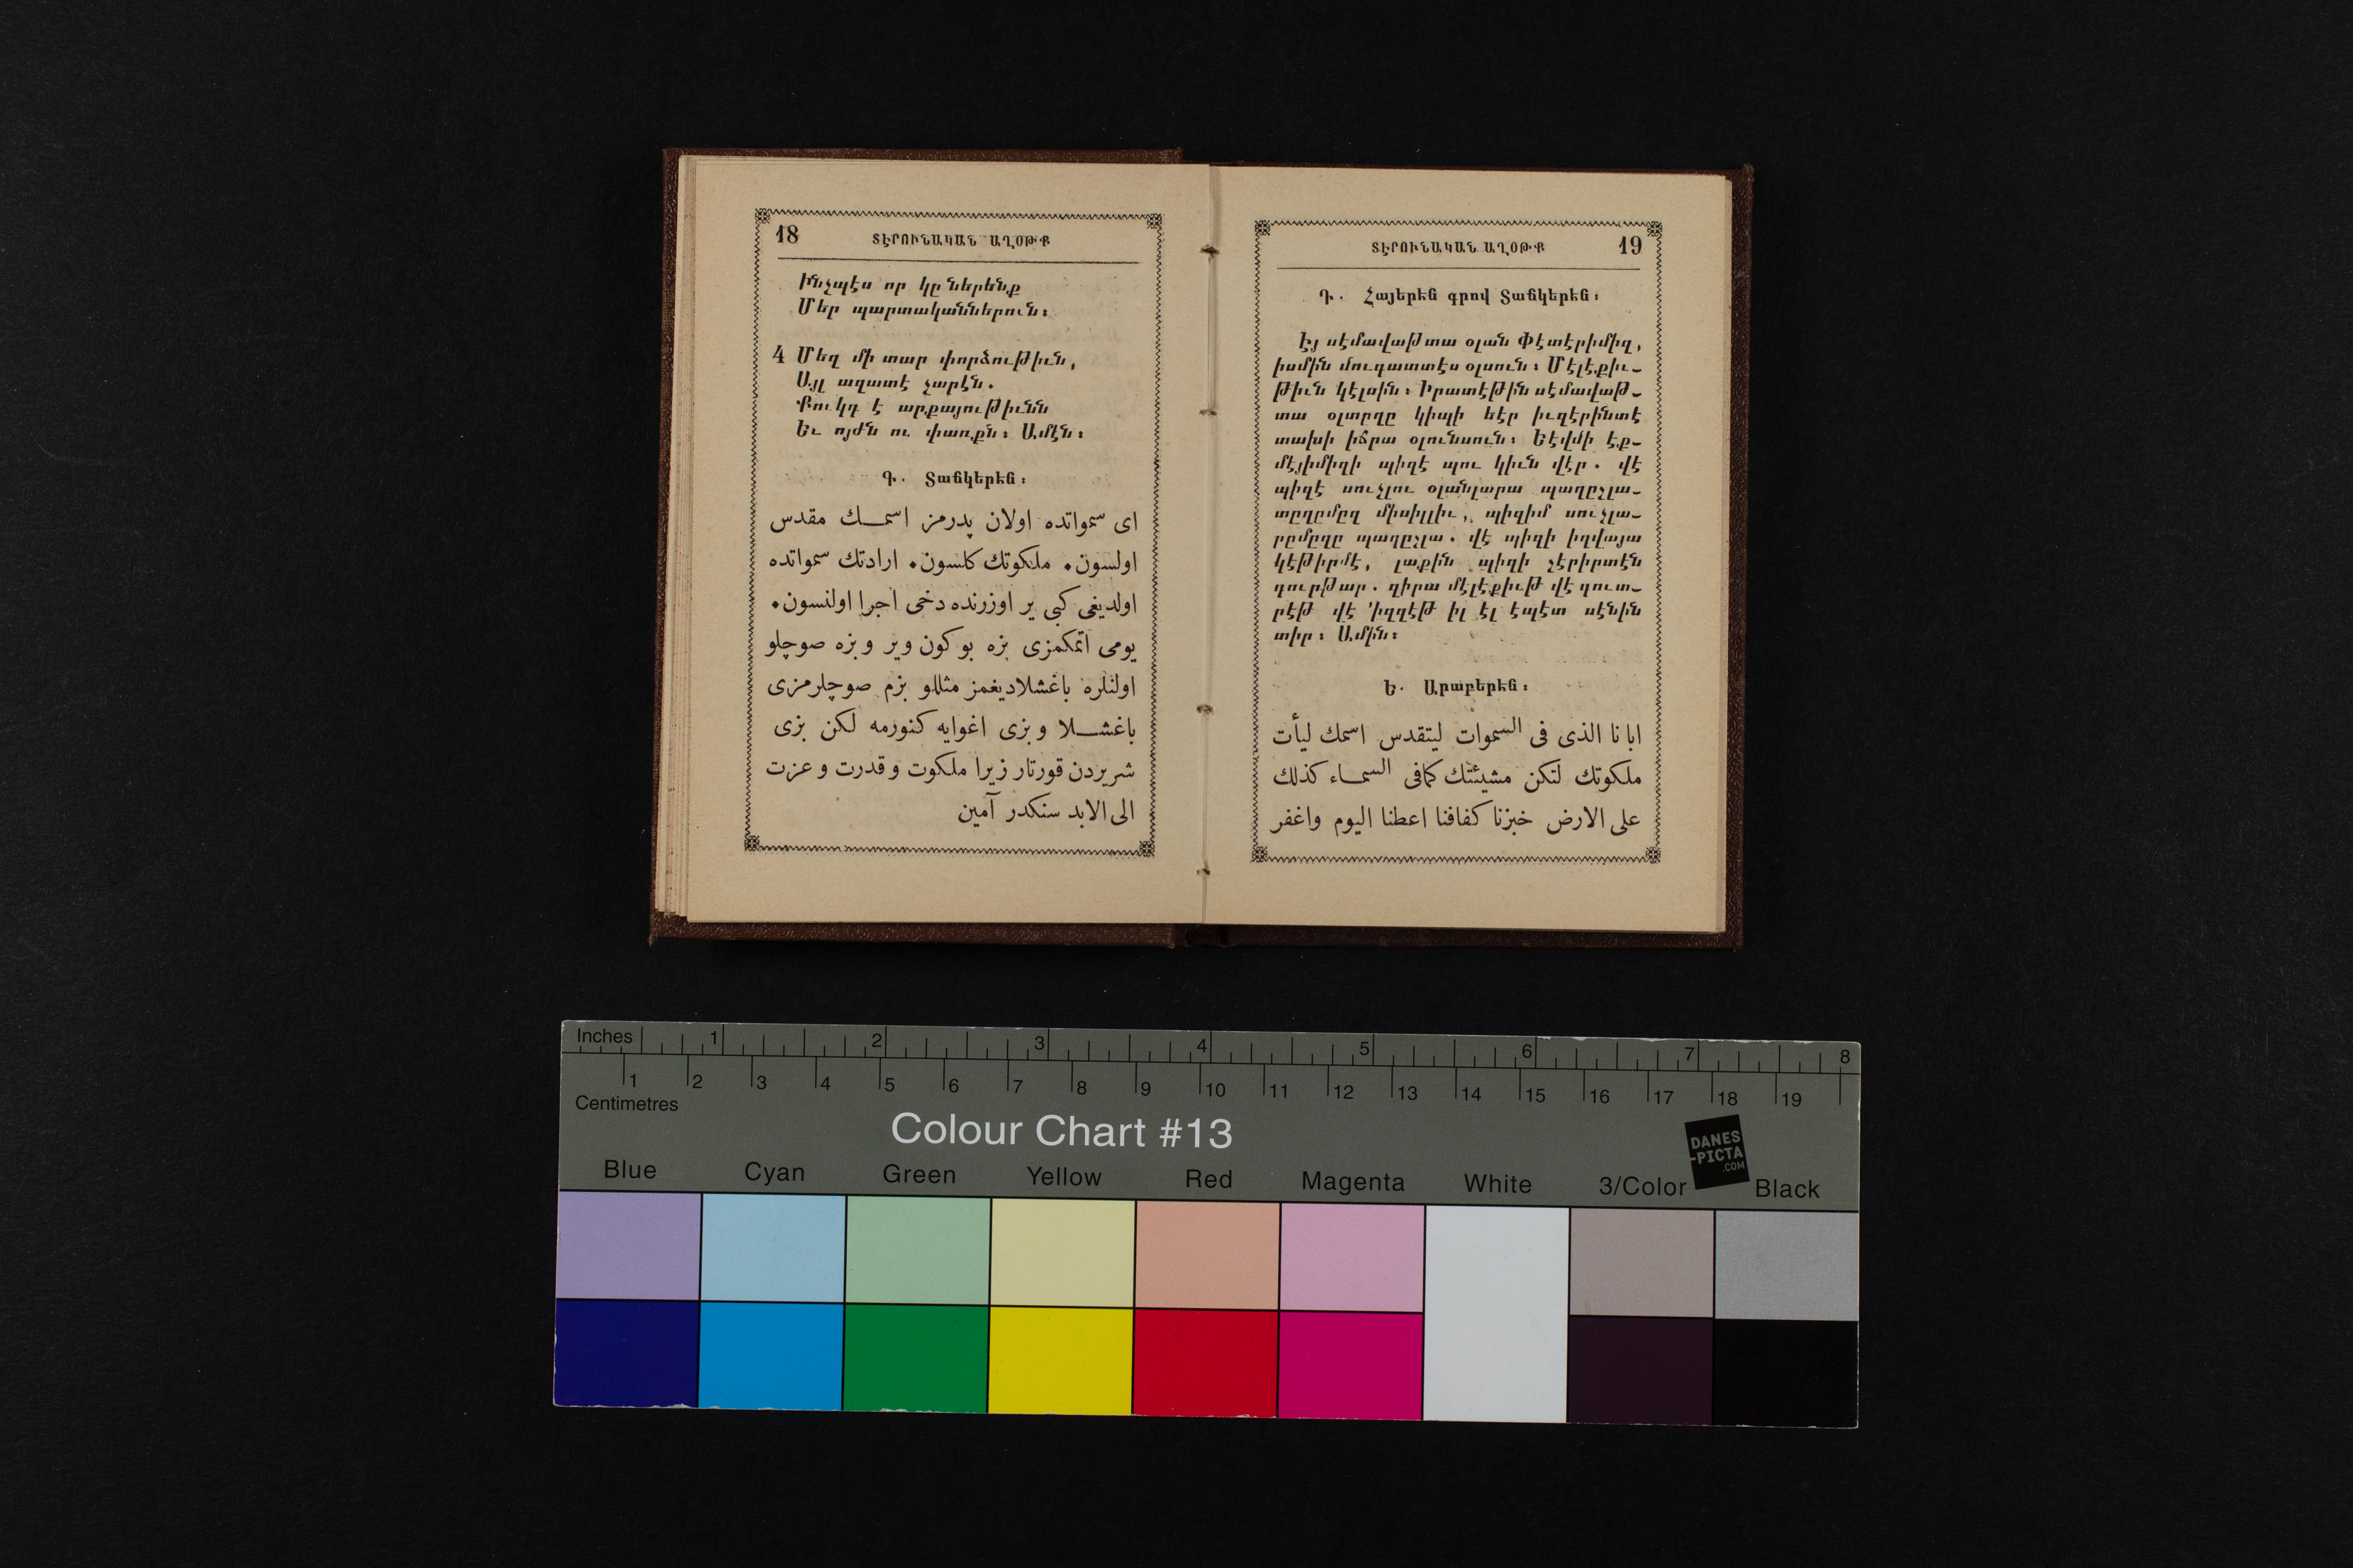 18 ՏԷՐՈՒՆԱԿԱՆ ԱՂՕԹՔ
Ինչպէս որ կը ներենք
Մեր պարտականներուն։
4 Մեղ մի տար փորձութիւն,
Այլ ազատէ չարէն.
Քուկդ է արքայութիւնն
Եւ ոյժն ու փառքն։ Ամէն։
Գ. Տանկերեն։
ای سمواتده اولان پدرمز اسمــك مقدس
اولسون. ملكوتك كلسون. ارادتك سمواتده
اولديغی كبی ير اوزرنده دخی اجرا اولنسون.
يومی اتمكمزی بزه بو كون وير و بزه صوچلو
اولنلره باغشلاديغمز مثللو بزم صوچلرمزی
باغشــلا و بزی اغوايه كتورمه لكن بزی
شريردن قورتار زيرا ملكوت و قدرت و عزت
الی الابد سنكدر آمين
ՏԷՐՈՒՆԱԿԱՆ ԱՂՕԹՔ 19
Դ. Հայերեն գրով Տանկերեն։
Էյ սէմավաթտա օլան Փէտէրիմիզ,
իսմին մուգատտէս օլսուն։ Մէլէքիւ-
թիւն կէլսին։ Իրատէթին սէմավաթ-
տա օլտըղը կիպի եէր իւզէրինտէ
տախի իճրա օլունսուն։ Եէվմի էք-
մէյիմիզի պիզէ պու կիւն վէր. վէ
պիզէ սուչլու օլանլարա պաղըշլա-
տըղըմըզ միսիլլիւ, պիզիմ սուչլա-
րըմըզը պաղըշլա. վէ պիզի իղվայա
կէթիրմէ, լաքին պիզի շէրիրտէն
գուրթար. զիրա մէլէքիւթ վէ գուտ-
րէթ վէ ՚իզզէթ իլ էլ էպէտ սէնին
տիր։ Ամին։
Ե. Արաբերեն։
ابانا الذی فی السموات ليتقدس اسمك ليأت
ملكوتك لتكن مشيئتك كمافی السمــاء كذلك
علی الارض خبزنا كفافنا اعطنا اليوم واغفر
Inches 1 2 3 4 5 6 7 8
1 2 3 4 5 6 7 8 9 10 11 12 13 14 15 16 17 18 19
Centimetres
Colour Chart #13
DANES
-PICTA
.COM
Blue Cyan Green Yellow Red Magenta White 3/Color Black